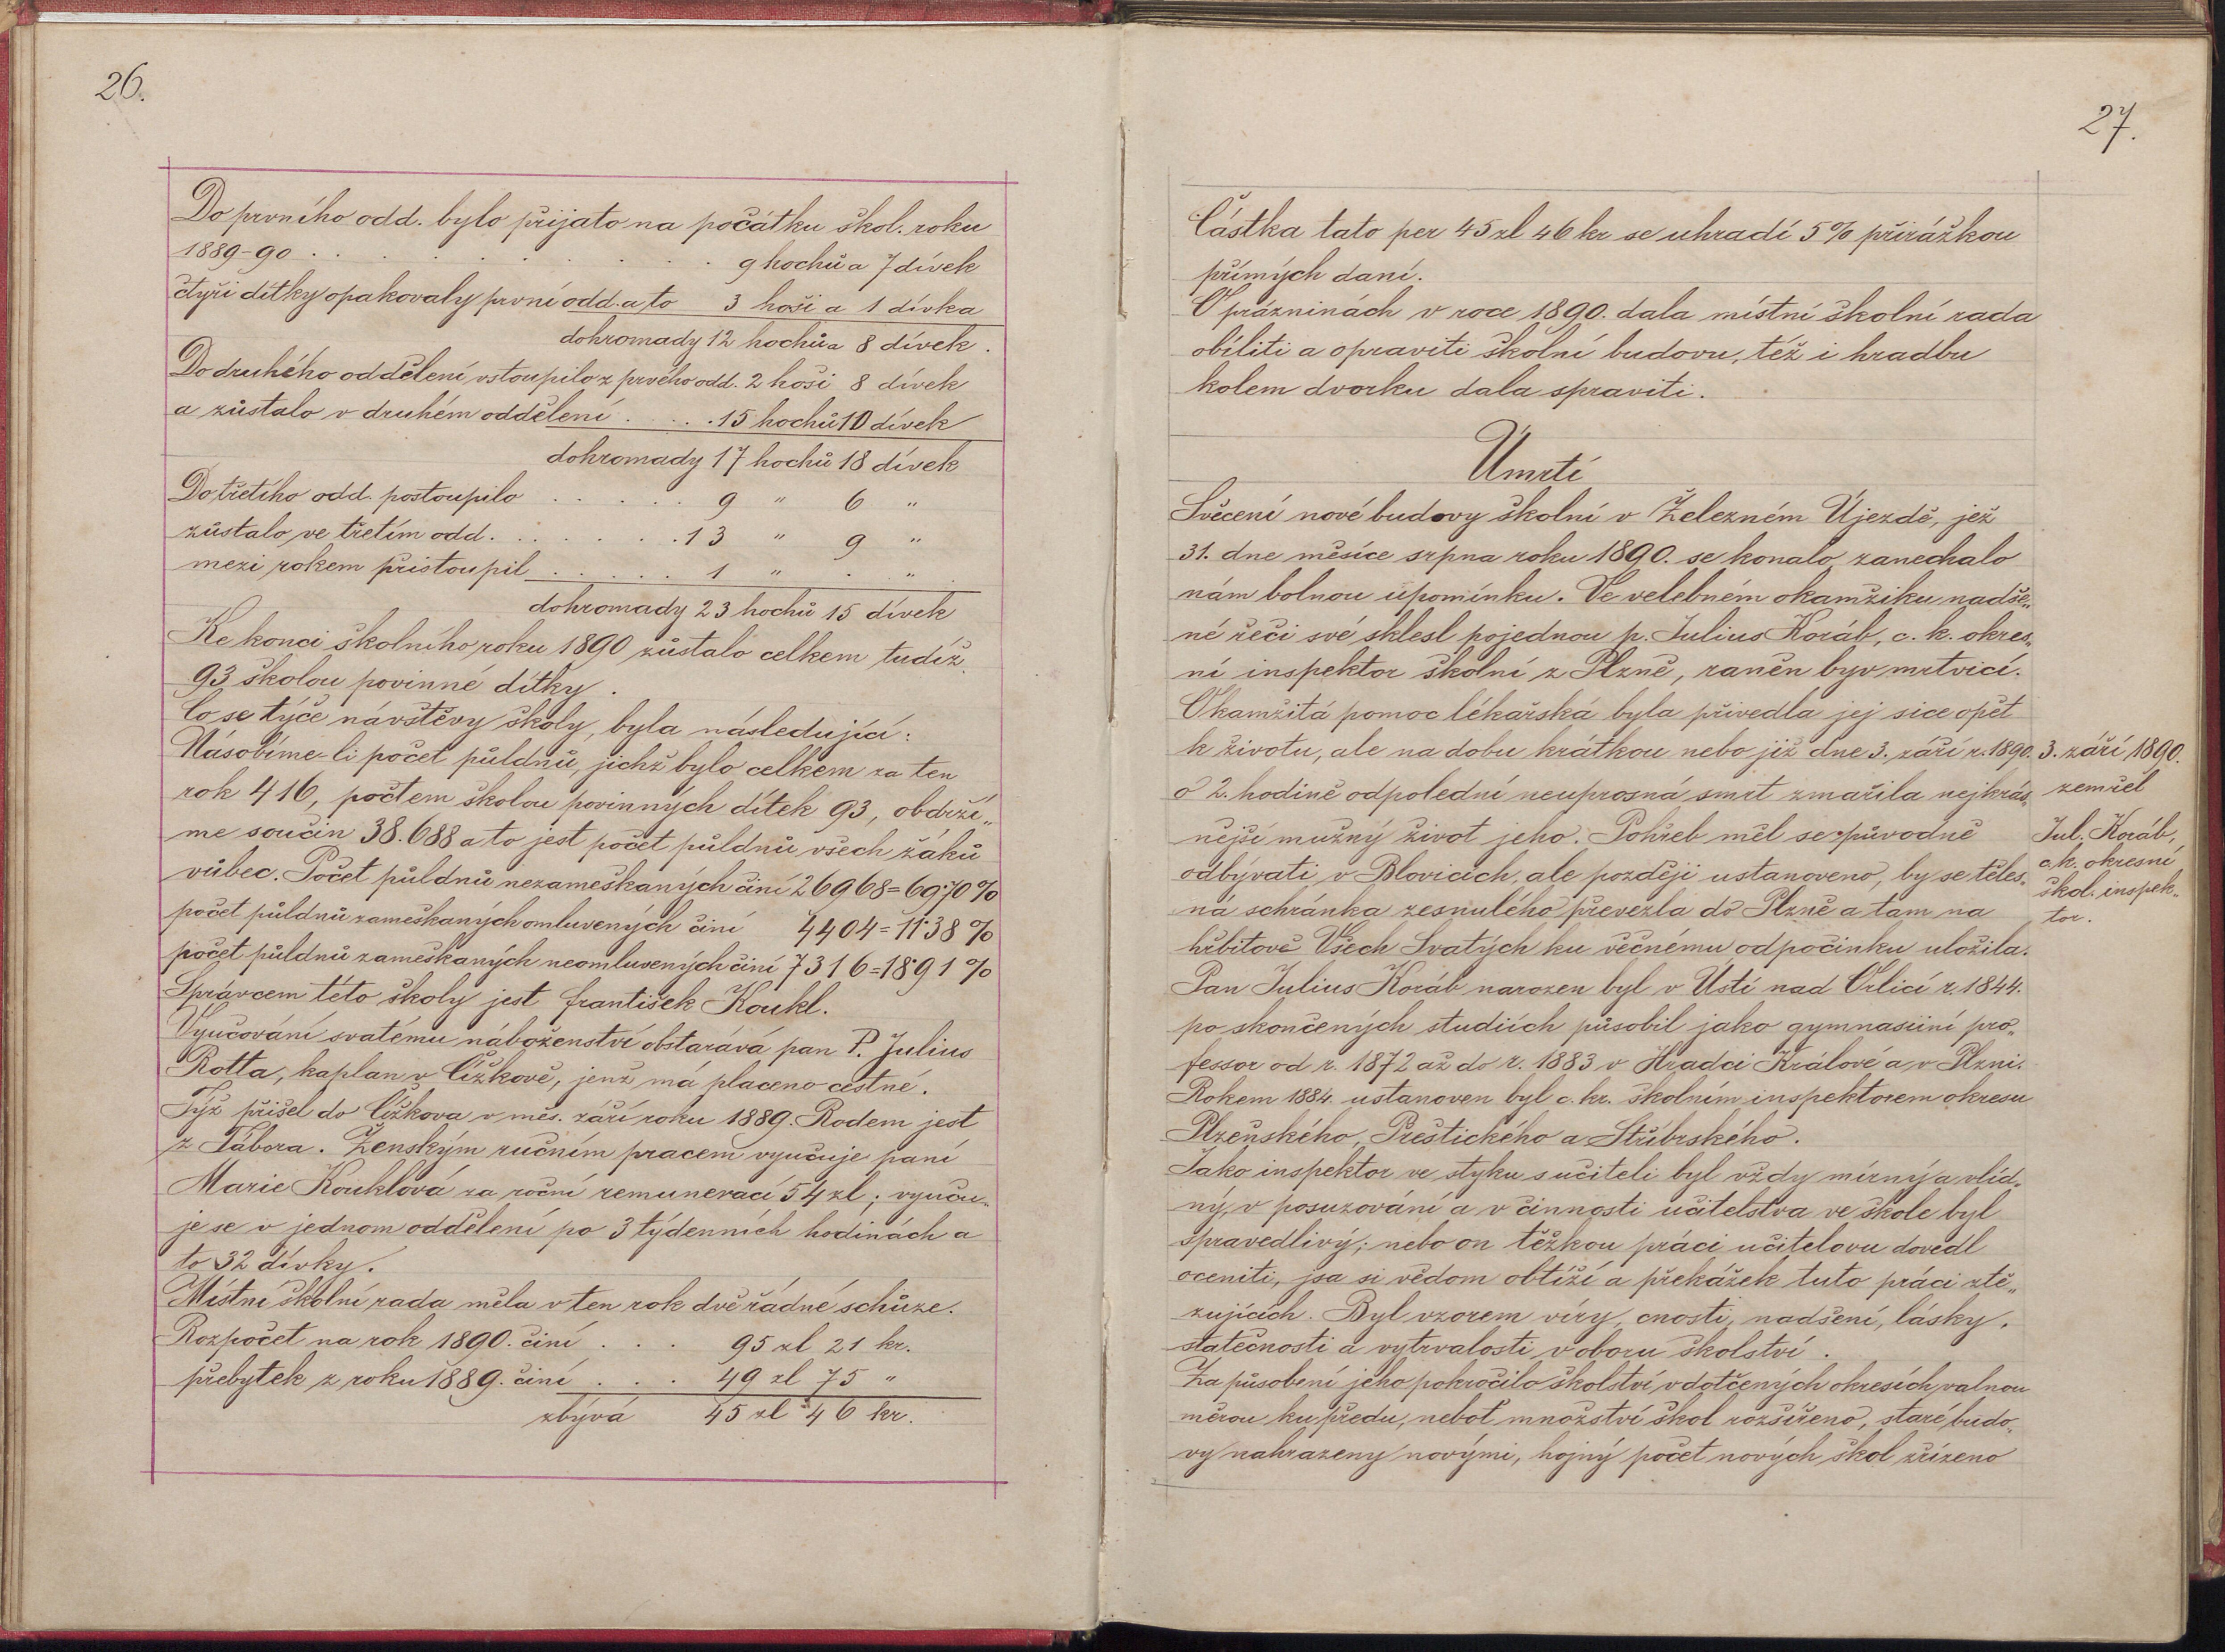 26.
Do prvního odd. bylo přijato na počátku škol. roku
1889-90 . . . . . . . . . 9 hochů a 7 dívek
čtyři dítky opakovaly první odd. a to 3 hoši a 1 dívka
dohromady 12 hochů a 8 dívek.
Do druhého oddělení vstoupilo z prvého odd. 2 hoši 8 dívek
a zůstalo v druhém oddělení . . . . 15 hochů 10 dívek
dohromady 17 hochů 18 dívek
Do třetího odd. postoupilo . . . . . 9 " 6 "
zůstalo ve třetím odd. . . . . . . 13 " 9 "
mezi rokem přistoupil . . . . . 1 " . "
dohromady 23 hochů 15 dívek
Ke konci školního roku 1890 zůstalo celkem tudíž
93 školou povinné dítky.
Co se týče návštěvy školy, byla následující:
Násobíme-li počet půldnů, jichž bylo celkem za ten
rok 416, počtem školou povinných dítek 93, obdrží„
me součin 38.688 a to jest počet půldnů všech žáků
vůbec. Počet půldnů nezameškaných činí 26968=69·70%
počet půldnů zameškaných omluvených činí 4404=11·38%
počet půldnů zameškaných neomluvených činí 7316=18·91%
Správcem této školy jest František Koukl.
Vyučování svatému náboženství obstarává pan P. Julius
Rotta, kaplan v Čížkově, jenž má placeno cestné.
Týž přišel do Čížkova v měs. září roku 1889. Rodem jest
z Tábora. Ženským ručním pracem vyučuje paní
Marie Kouklová za roční remunerací 54 zl; vyuču„
je se v jednom oddělení po 3 týdenních hodinách a
to 32 dívky.
Místní školní rada měla v ten rok dvě řádné schůze.
Rozpočet na rok 1890. činí . . . 95 zl 21 kr.
přebytek z roku 1889. činí . . . 49 zl 75 "
zbývá 45 zl 46 kr.
27.
Částka tato per 45 zl 46 kr se uhradí 5% přirážkou
přímých daní.
O prázninách v roce 1890. dala místní školní rada
obíliti a opraviti školní budovu, též i hradbu
kolem dvorku dala spraviti.
Úmrtí
Svěcení nové budovy školní v Železném Újezdě, jež
31. dne měsíce srpna roku 1890. se konalo, zanechalo
nám bolnou upomínku. Ve velebném okamžiku nadše„
né řeči své sklesl pojednou p. Julius Koráb, c. k. okres„
ní inspektor školní z Plzně, raněn byv mrtvicí.
Okamžitá pomoc lékařská byla přivedla jej sice opět
k životu, ale na dobu krátkou nebo již dne 3. září r. 1890.
o 2. hodině odpolední neuprosná smrt zmařila nejkrás„
nější mužný život jeho. Pohřeb měl se původně
odbývati v Blovicích, ale později ustanoveno, by se těles„
ná schránka zesnulého převezla do Plzně a tam na
hřbitově Všech Svatých ku věčnému odpočinku uložila.
3. září 1890.
zemřel
Jul. Koráb,
c. k. okresní
škol. inspek„
tor.
Pan Julius Koráb narozen byl v Ústí nad Orlicí r. 1844.
po skončených studiích působil jako gymnasiiní pro„
fessor od r. 1872 až do r. 1883 v Hradci Králové a v Plzni.
Rokem 1884. ustanoven byl c. kr. školním inspektorem okresu
Plzeňského, Přeštického a Stříbrského.
Jako inspektor ve styku s učiteli byl vždy mírný a vlíd„
ný, v posuzování a v činnosti učitelstva ve škole byl
spravedlivý; nebo on těžkou práci učitelovu dovedl
oceniti, jsa si vědom obtíží a překážek tuto práci ztě„
zujících. Byl vzorem víry, cnosti, nadšení, lásky,
statečnosti a vytrvalosti v oboru školství.
Za působení jeho pokročilo školství v dotčených okresích valnou
měrou ku předu, neboť množství škol rozšířeno, staré budo„
vy nahrazeny novými, hojný počet nových škol zřízeno